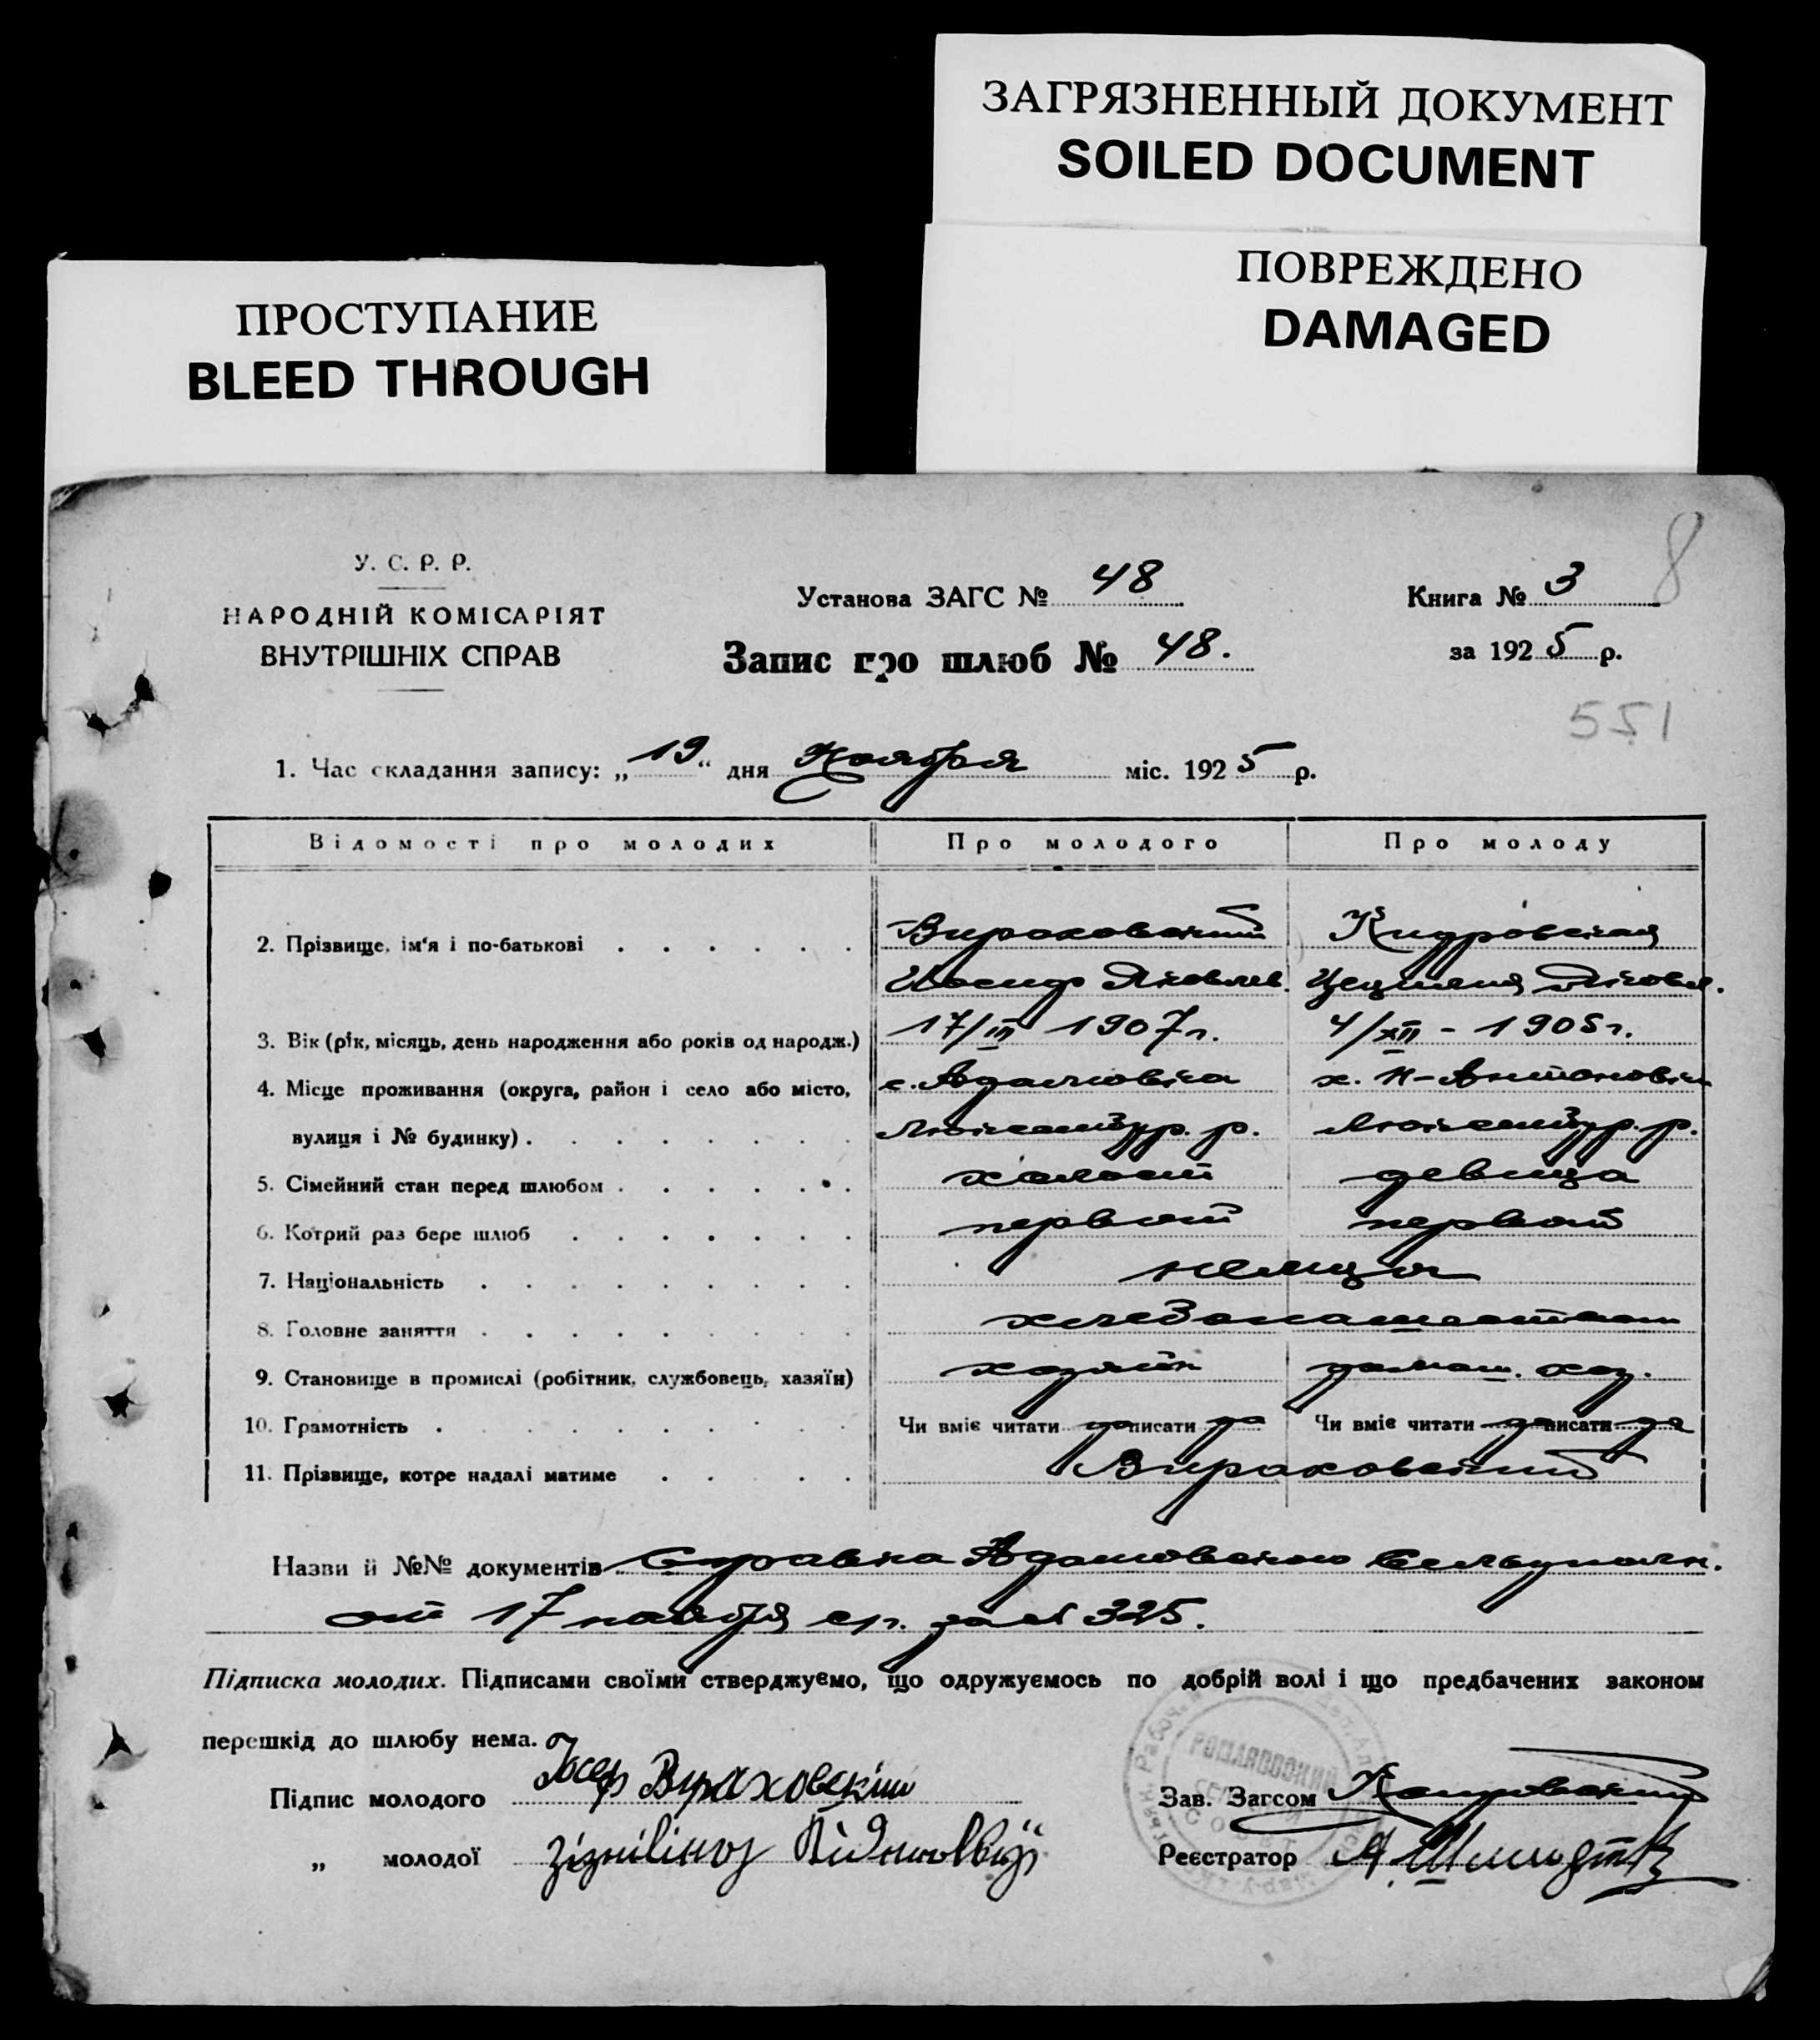 ЗАГРЯЗНЕННЫЙ ДОКУМЕНТ
SOILED DOCUMENT
ПОВРЕЖДЕНО
DAMAGED
ПРОСТУПАНИЕ
BLEED THROUGH
8
У. С. Р. Р.
НАРОДНІЙ КОМІСАРІЯТ
ВНУТРІШНІХ СПРАВ
Установа ЗАГС № 48
Запис про шлюб № 48.
Книга № 3
за 1925 р.
551
1. Час складання запису: „19“ дня Ноября міс. 1925 р.
Відомості про молодих Про молодого Про молоду
2. Прізвище, ім'я і по-батькові . . . . . . Вираховский
Иосиф Яковлев. Яковл.
3. Вік (рік, місяць, день народження або років од народж.) 17/III 1907 г. 4/XII - 1905 г.
4. Місце проживання (округа, район і село або місто, с. Адамовка х. Н-Антоновка
вулиця і № будинку) . . . . . . . . р. р.
5. Сімейний стан перед шлюбом . . . . . . холост девица
6. Котрий раз бере шлюб . . . . . . . первый первый
7. Національність . . . . . . . . . немцы
8. Головне заняття . . . . . . . . . хлебопашество
9. Становище в промислі (робітник, службовець, хазяїн) хозяин домаш. хоз.
10. Грамотність . . . . . . . . . Чи вміє читати да писати да Чи вміє читати да писати да
11. Прізвище, котре надалі матиме . . . . Вираховский
Назви й №№ документів Справка Адамовского
от 17 ноября с.г. за № 325.
Підписка молодих. Підписами своїми стверджуємо, що одружуємось по добрій волі і що предбачених законом
перешкід до шлюбу нема.
Підпис молодого Йосеф Вираховскій
„ молодої
Зав. Загсом
Реєстратор А. Шмидт